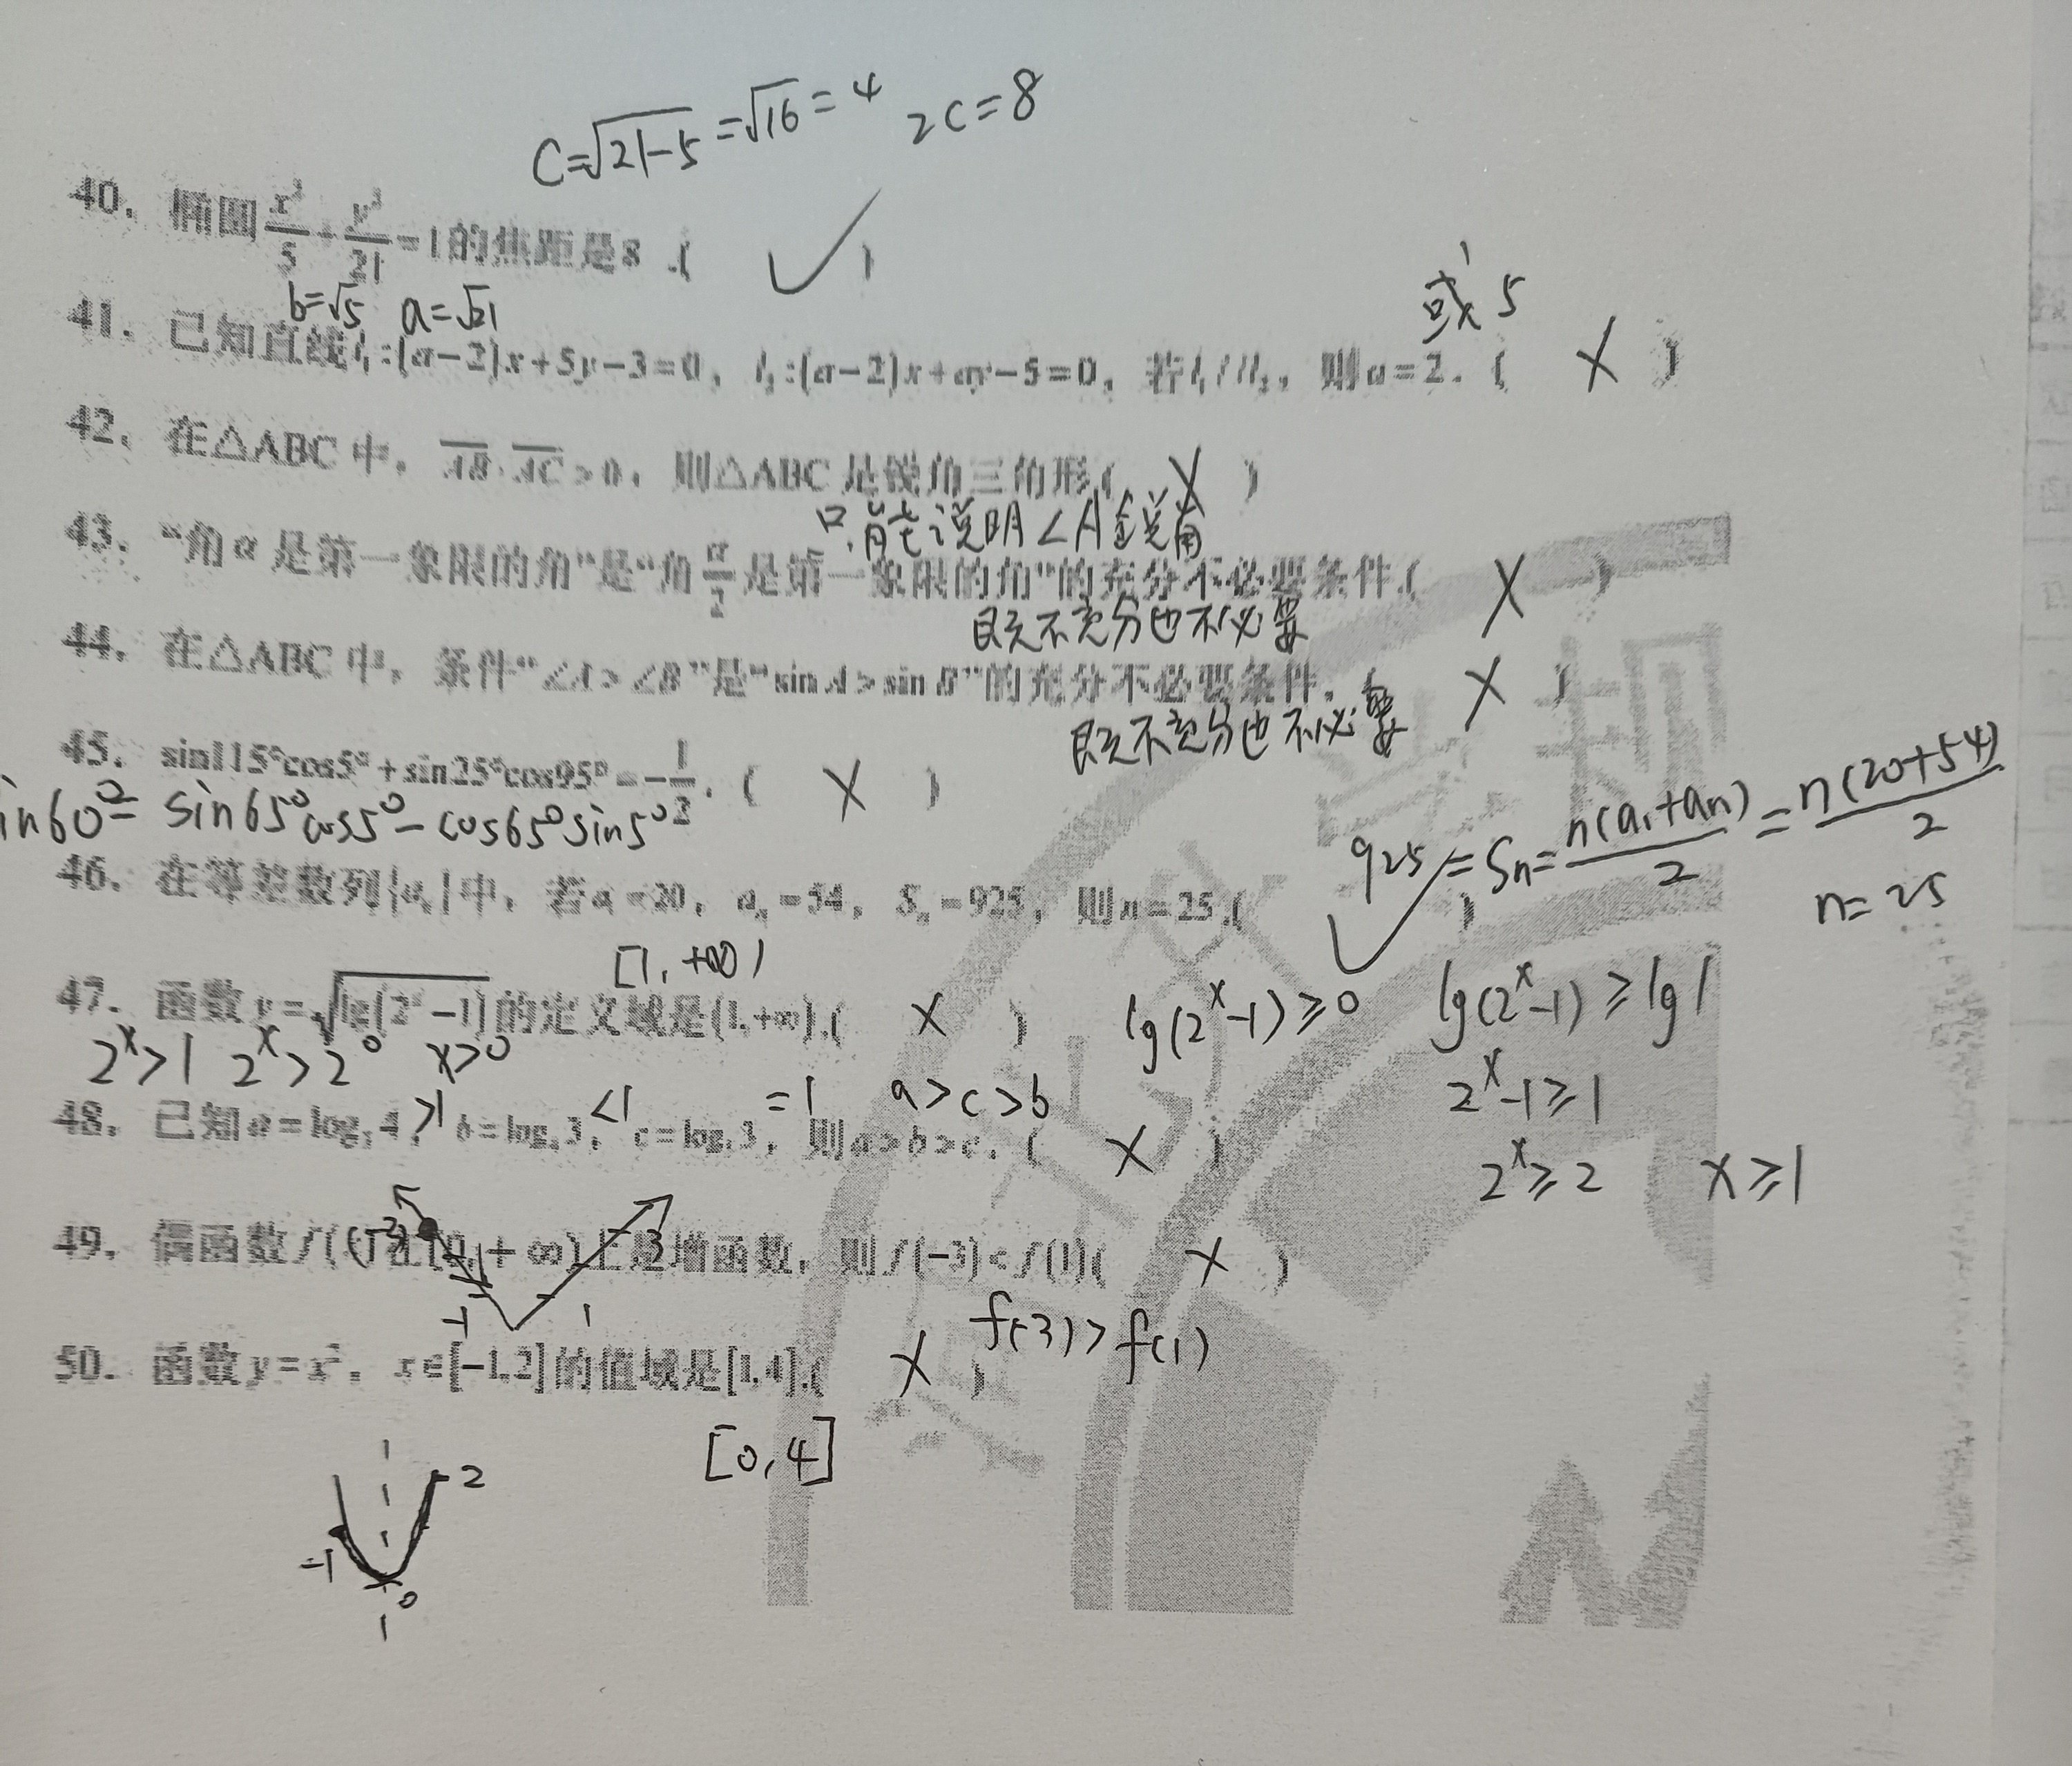 C=√21-5=√16=4 2C=8
40. 椭圆x²/5+y²/21=1的焦距是8.( ✓ )
b=√5 a=√21
或 5
41. 已知直线l₁:(a-2)x+5y-3=0，l₂:(a-2)x+ay-5=0，若l₁//l₂，则a=2.( X )
42. 在△ABC中，AB·AC>0，则△ABC是锐角三角形( X )
只能说明∠A锐角
43. “角α是第一象限的角”是“角α/2是第一象限的角”的充分不必要条件.( X )
既不充分也不必要
44. 在△ABC中，条件“∠A>∠B”是“sin A>sin B”的充分不必要条件.( X )
既不充分也不必要
45. sin115°cos5°+sin25°cos95°=-1/2.( X )
in60°= sin65°cos5°-cos65°sin5°
925=Sn=n(a₁+an)/2=n(20+54)/2
46. 在等差数列{aₙ}中，若a=20，aₙ=54，Sₙ=925，则n=25.( ✓ )
n=25
[1,+∞)
47. 函数y=√lg(2ˣ-1)的定义域是(1,+∞).( X )
lg(2ˣ-1)≥0 lg(2ˣ-1)≥lg1
2ˣ>1 2ˣ>2⁰ x>0
2ˣ-1≥1
>1 <1 =1 a>c>b
48. 已知a=log₃4，b=log₄3，c=log₃3，则a>b>c.( X )
2ˣ≥2 x≥1
49. 偶函数 +∞)上是增函数，则f(-3)<f(1)( X )
-3 3
-1 1
f(3)>f(1)
50. 函数y=x²，x∈[-1,2]的值域是[1,4].( X )
[0,4]
2
-1
0